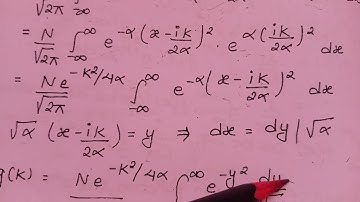 √2π -∞
= N/√2π ∫_{-∞}^{∞} e^{-α(x - ik/2α)²} . e^{α(ik/2α)²} dx
= Ne^{-k²/4α}/√2π ∫_{-∞}^{∞} e^{-α(x - ik/2α)²} dx
√α (x - ik/2α) = y ⇒ dx = dy/√α
g(k) = Ne^{-k²/4α} ∫^{∞} e^{-y²} dy